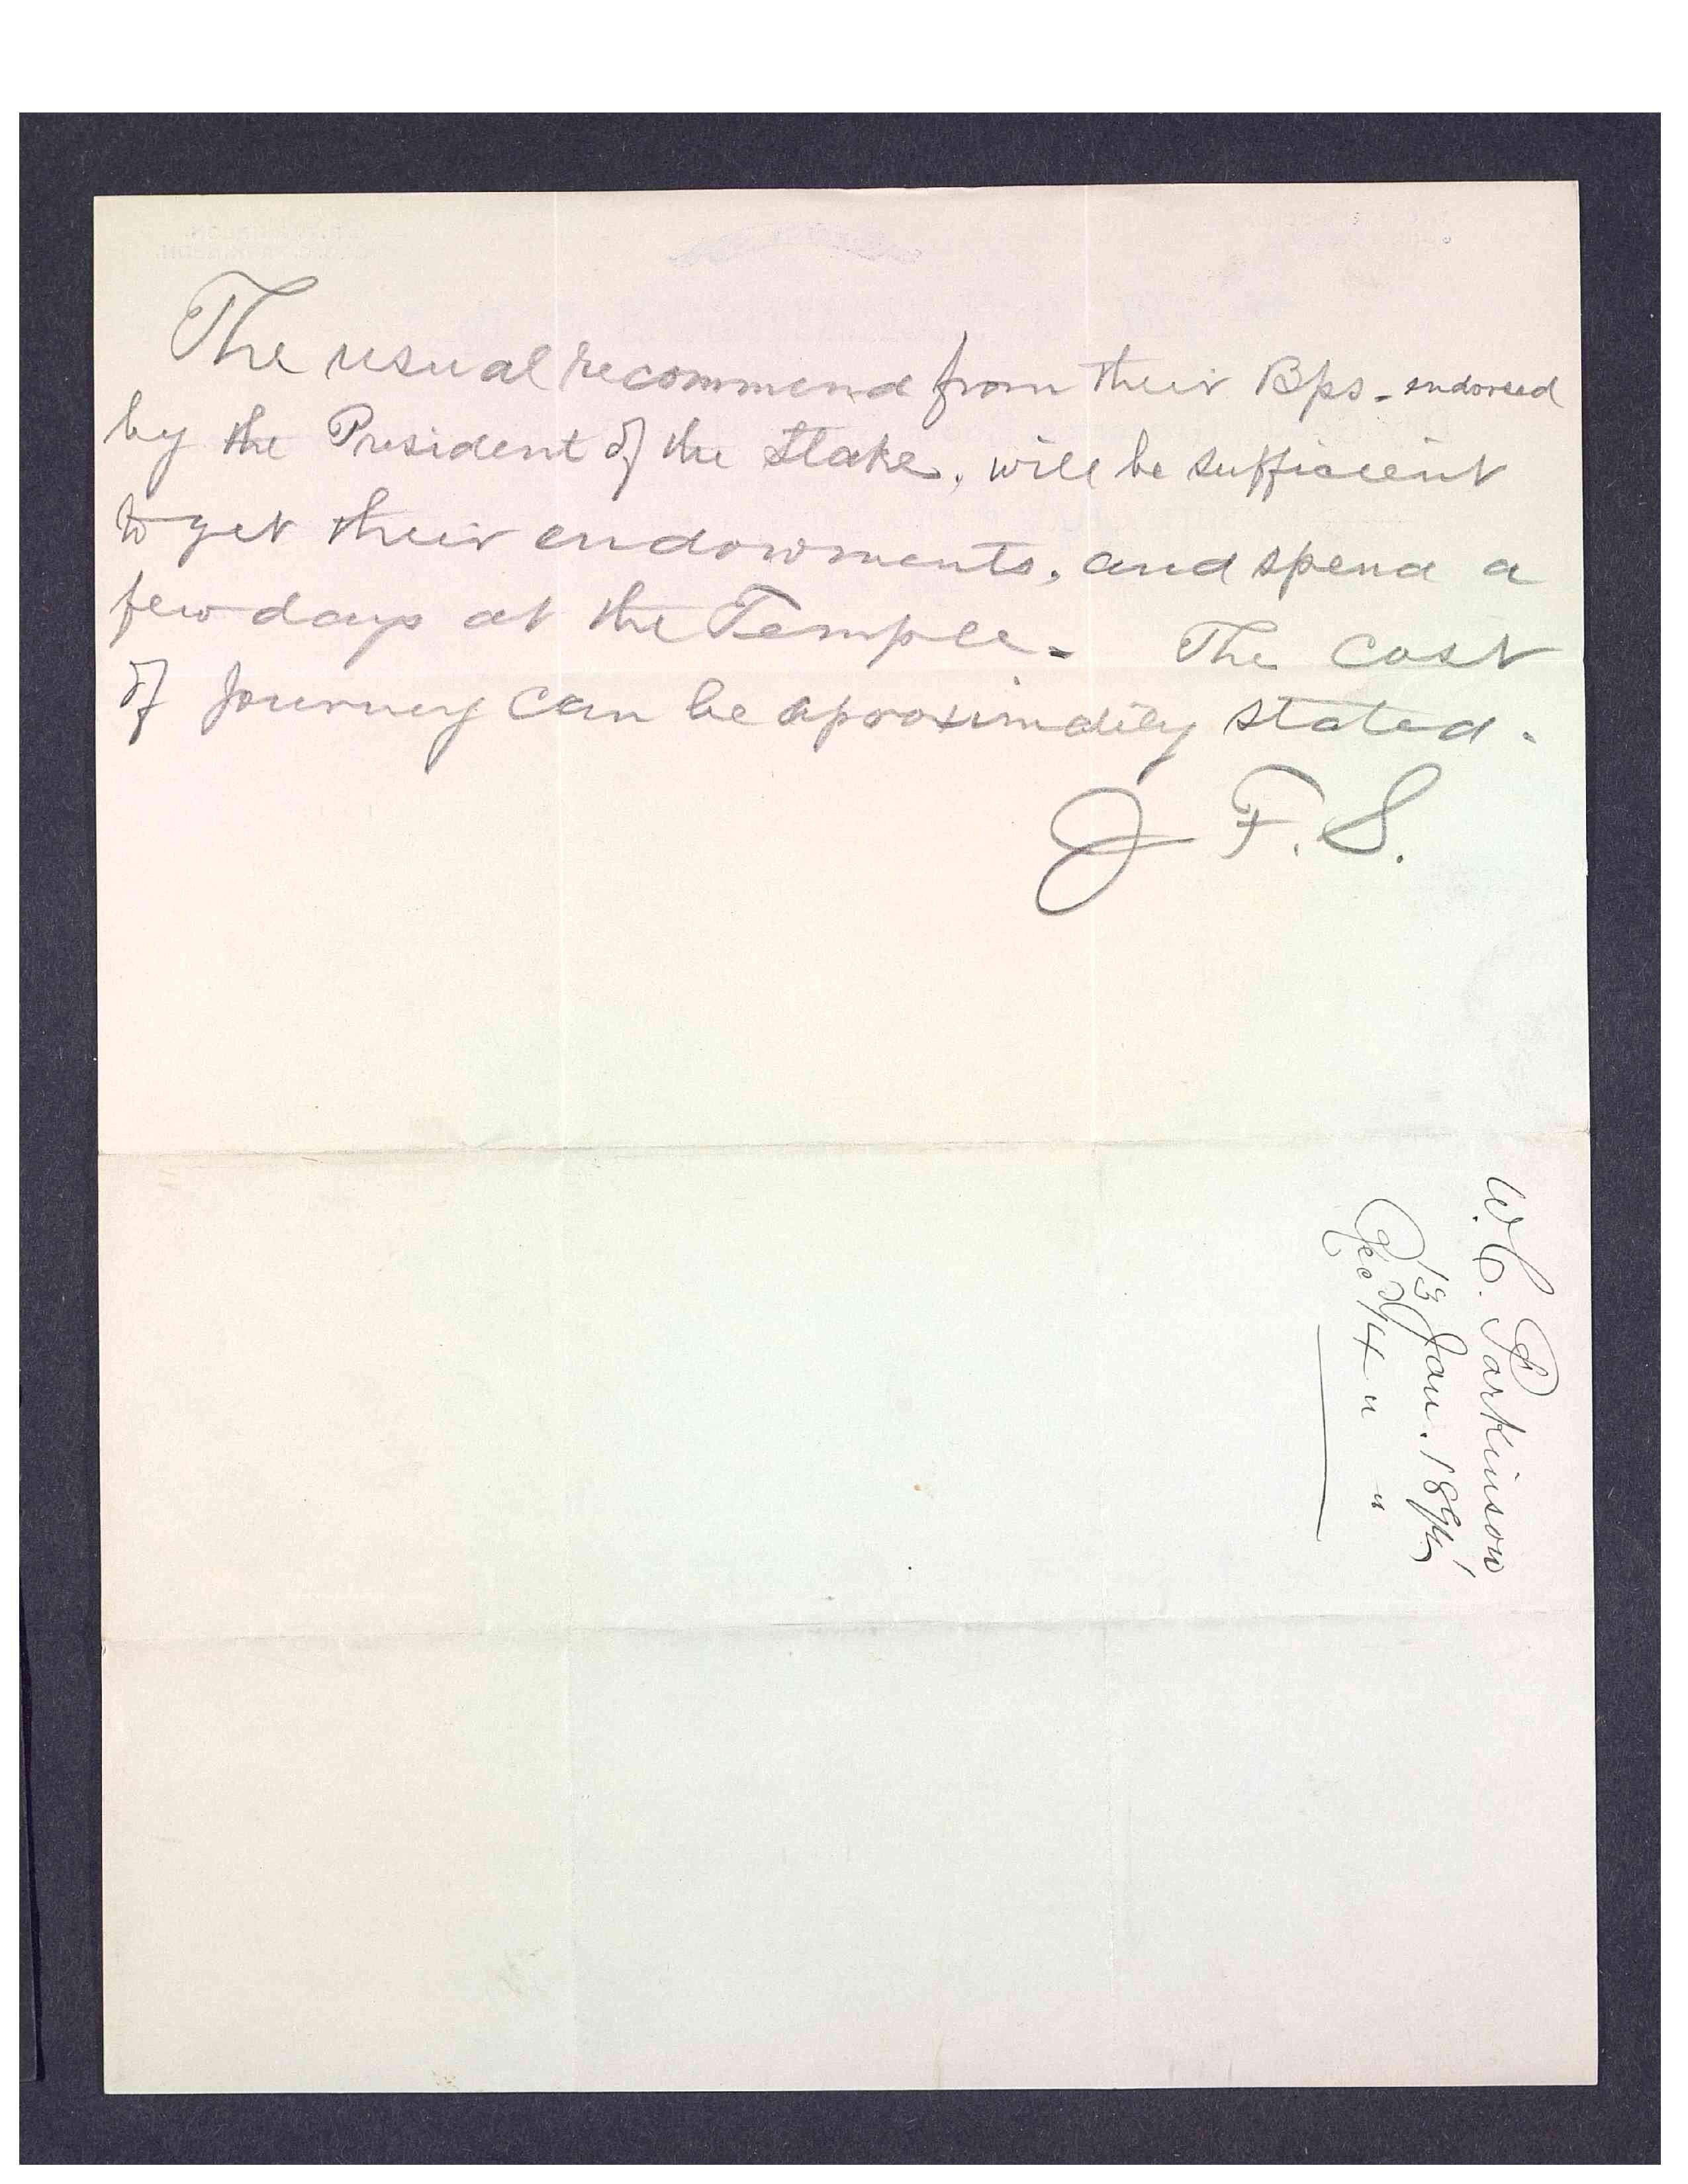 The usual recommend from their Bps. endorsed
by the President of the Stake, will be sufficient
to get their endowments, and spend a
few days at the Temple. The cost
of journey can be aproximatily stated.
J F. S.
W. C. Parkinson
13 Jan. 1894
Recd 14 " "